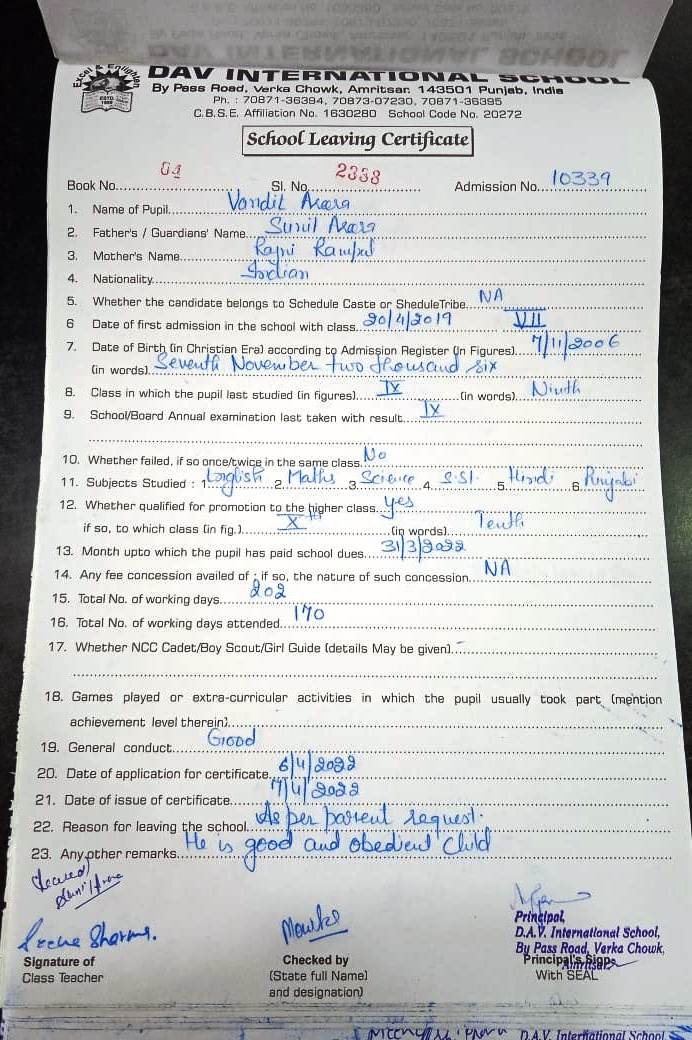 DAV INTERNATIONAL SCHOOL
Excel & Enlighten
ESTD.
By Pass Road, Verka Chowk, Amritsar. 143501 Punjab, India
Ph. : 70871-36394, 70873-07230, 70871-36395
C.B.S.E. Affiliation No. 1630280 School Code No. 20272
School Leaving Certificate
Book No. 04 Sl. No. 2338 Admission No. 10339
1. Name of Pupil Vandit Arora
2. Father's / Guardians' Name Sunil Arora
3. Mother's Name Rajni Rampal
4. Nationality Indian
5. Whether the candidate belongs to Schedule Caste or SheduleTribe NA
6 Date of first admission in the school with class 20/4/2019 VII
7. Date of Birth (in Christian Era) according to Admission Register (In Figures) 7/11/2006
(in words) Seventh November two thousand six
8. Class in which the pupil last studied (in figures) IX (in words) Ninth
9. School/Board Annual examination last taken with result IX
10. Whether failed, if so once/twice in the same class No
11. Subjects Studied : 1 English 2 Maths 3 Science 4 S.St. 5 Hindi 6 Punjabi
12. Whether qualified for promotion to the higher class yes
if so, to which class (in fig.) Xth (in words) Tenth
13. Month upto which the pupil has paid school dues 31/3/2022
14. Any fee concession availed of ; if so, the nature of such concession NA
15. Total No. of working days 202
16. Total No. of working days attended 170
17. Whether NCC Cadet/Boy Scout/Girl Guide (details May be given) -
18. Games played or extra-curricular activities in which the pupil usually took part (mention
achievement level therein)
19. General conduct Good
20. Date of application for certificate 6/4/2022
21. Date of issue of certificate 7/4/2022
22. Reason for leaving the school As per parent request.
23. Any other remarks He is good and obedient Child
Sharma.
Signature of
Class Teacher
Checked by
(State full Name)
and designation)
Principal,
D.A.V. International School,
By Pass Road, Verka Chowk,
Amritsar
Principal's Sign.
With SEAL
D.A.V. International School